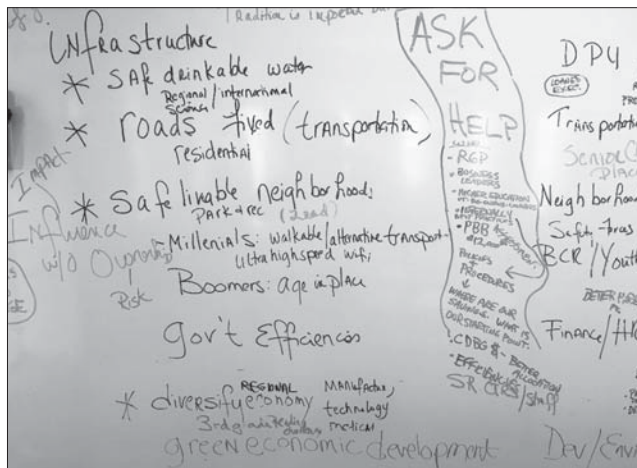 Tradition is
INfrastructure
* SAfe drinkable water
Regional/international
science
* roads fixed (transportation)
residential
* Safe livable neighborhoods
Park & rec (Lead)
- Millenials: walkable/alternative transport-
Ultra high speed wifi
Boomers: age in place
gov't Efficiencies
* diversify economy
REGIONAL
MANufactur,
technology
medical
3rd
green economic development
Impact
Influence
w/o Ownership
Risk
ASK
FOR
HELP
- RGP
- BUSINESS
LEADERS
- HIGHER EDUCATION
- PBB
POLICIES
+
PROCEDURES
↓
WHERE ARE OUR
SAVINGS. WHAT IS
OUR STARTING POINT.
. CDBG $ - BETTER
ALLOCATION
- EFFICIENCIES
SR CITS/staff
DPU
LOANED
EXEC.
Transportatio
Senior C
Place
Neighborhoo
Safety-
BCR/Youth
BETTER
Finance/H
Dev/Envi